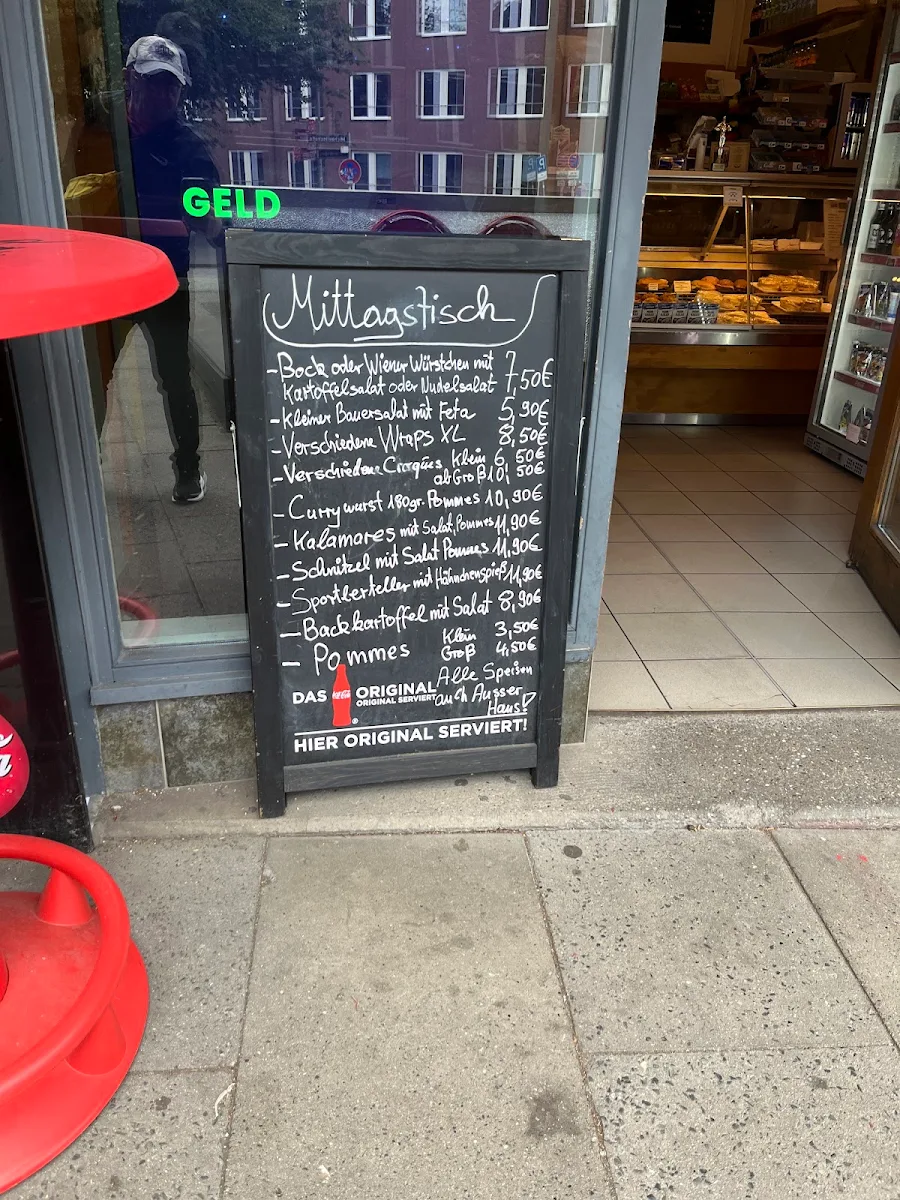 GELD
Mittagstisch
- Bock oder Wiener Würstchen mit
Kartoffelsalat oder Nudelsalat 7,50€
- Kleiner Bauersalat mit Feta 5,90€
- Verschiedene Wraps XL 8,50€
- Verschiedene Croques Klein 6,50€
ab Groß 10,50€
- Currywurst 180gr. Pommes 10,90€
- Kalamares mit Salat, Pommes 11,90€
- Schnitzel mit Salat Pommes 11,90€
- Sportlerteller mit Hähnchenspieß 11,90€
- Backkartoffel mit Salat 8,90€
- Pommes Klein 3,50€
Groß 4,50€
Alle Speisen
auch Ausser
Haus!
DAS Coca-Cola ORIGINAL
ORIGINAL SERVIERT
HIER ORIGINAL SERVIERT!